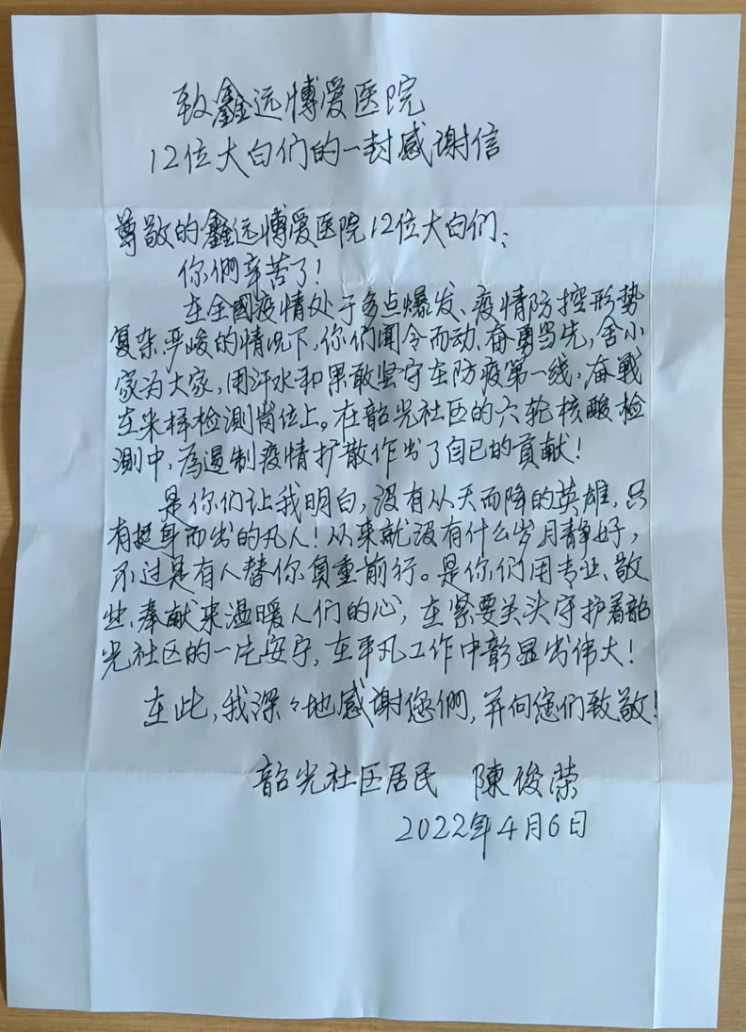 致鑫远博爱医院
12位大白们的一封感谢信
尊敬的鑫远博爱医院12位大白们：
你們辛苦了！
在全國疫情处于多点爆发、疫情防控形势
复杂严峻的情况下，你们闻令而动、奋勇当先，舍小
家为大家，用汗水和果敢坚守在防疫第一线，奋戰
在采样检測岗位上。在韶光社区的六轮核酸检
測中，為遏制疫情扩散作出了自已的贡献！
是你们让我明白，没有从天而降的英雄，只
有挺身而出的凡人！从来就没有什么岁月静好，
不过是有人替你負重前行。是你们用专业、敬
业、奉献来温暖人们的心，在紧要关头守护着韶
光社区的一片安宁，在平凡工作中彰显出伟大！
在此，我深々地感谢您們，并向您们致敬！
韶光社区居民 陳俊荣
2022年4月6日